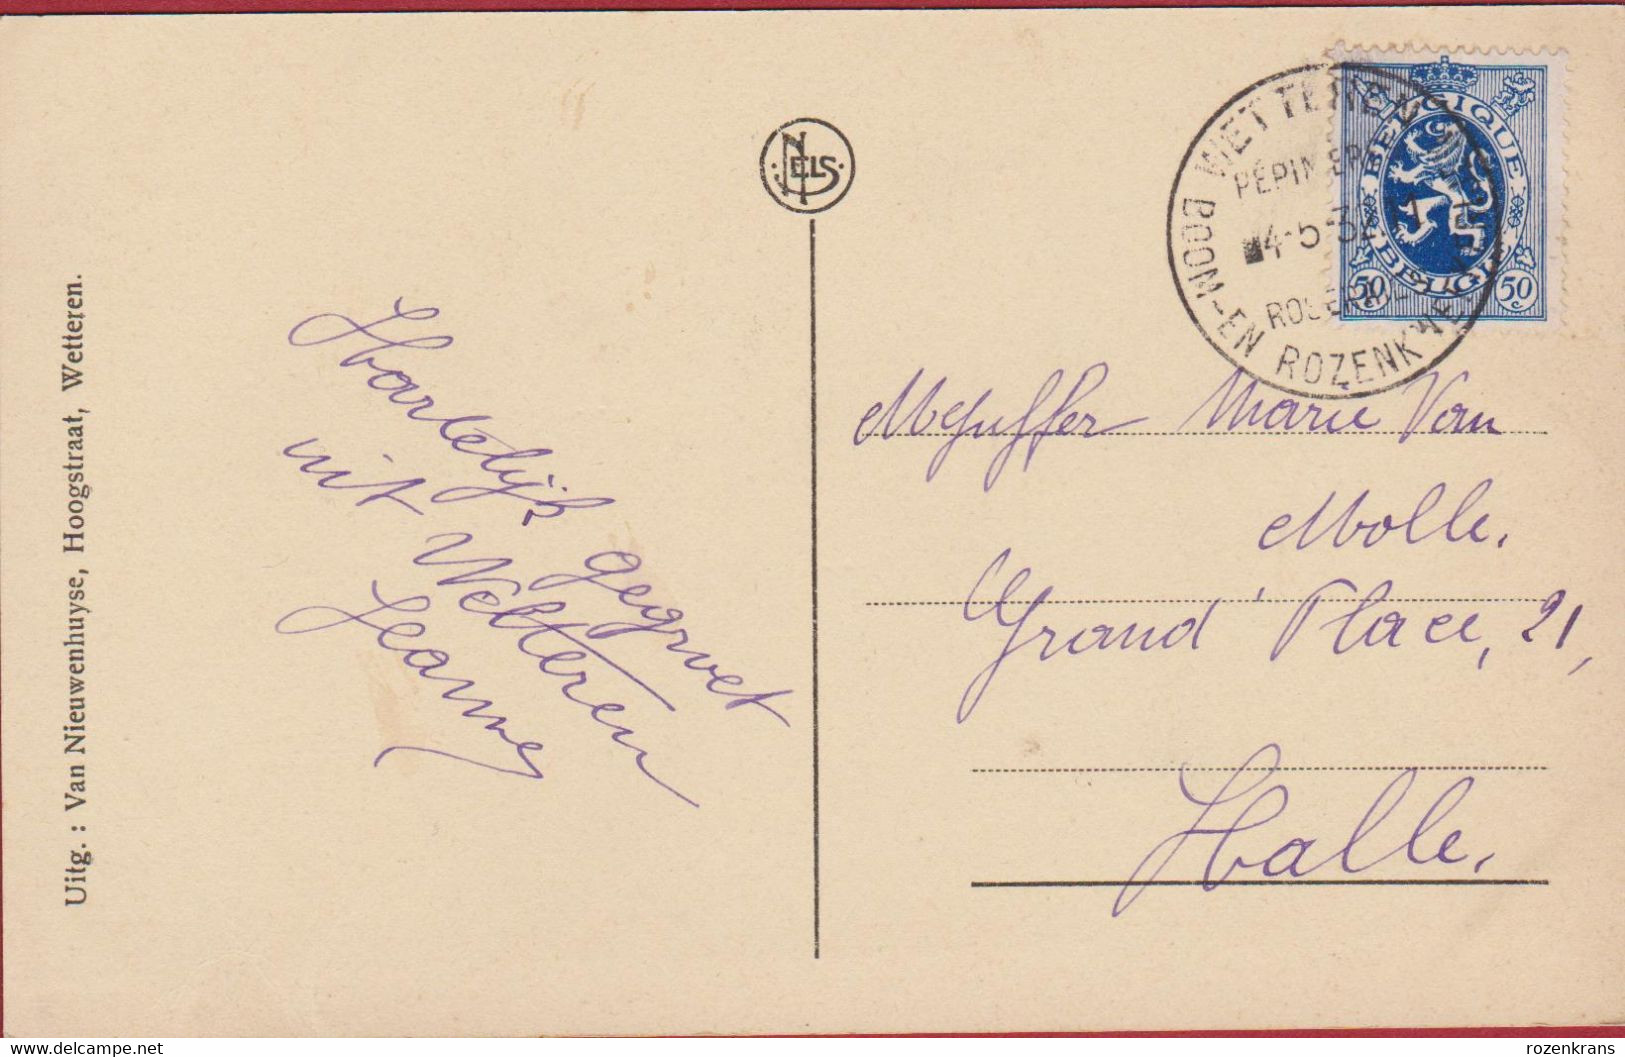 Uitg. : Van Nieuwenhuyse, Hoogstraat, Wetteren.
Hartelijk gegroet
uit Wetteren
Jeanne
NELS
WETTEREN
PÉPINIÈR
4-5-32 11
ROSERAIE
BOOM-EN ROZENKWEEKERIJ
BELGIQUE
BELGIË
50c
50c
Mejuffer Marie Van
Molle.
Grand' Place, 21,
Halle.
delcampe.net
rozenkrans